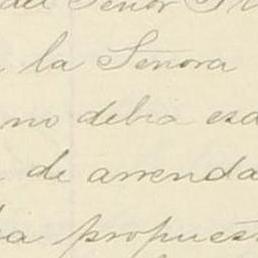 del Señor
la Señora
no debia
de arrenda
propues